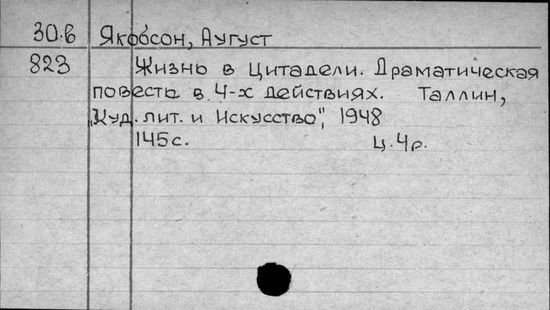 30.6 Якобсон, Аугуст
823 Жизнь в Цитадели. Драматическая
повесть в 4-х действиях. Таллин,
„Худ. лит. и Искусство", 1948
145с. ц. 4р.